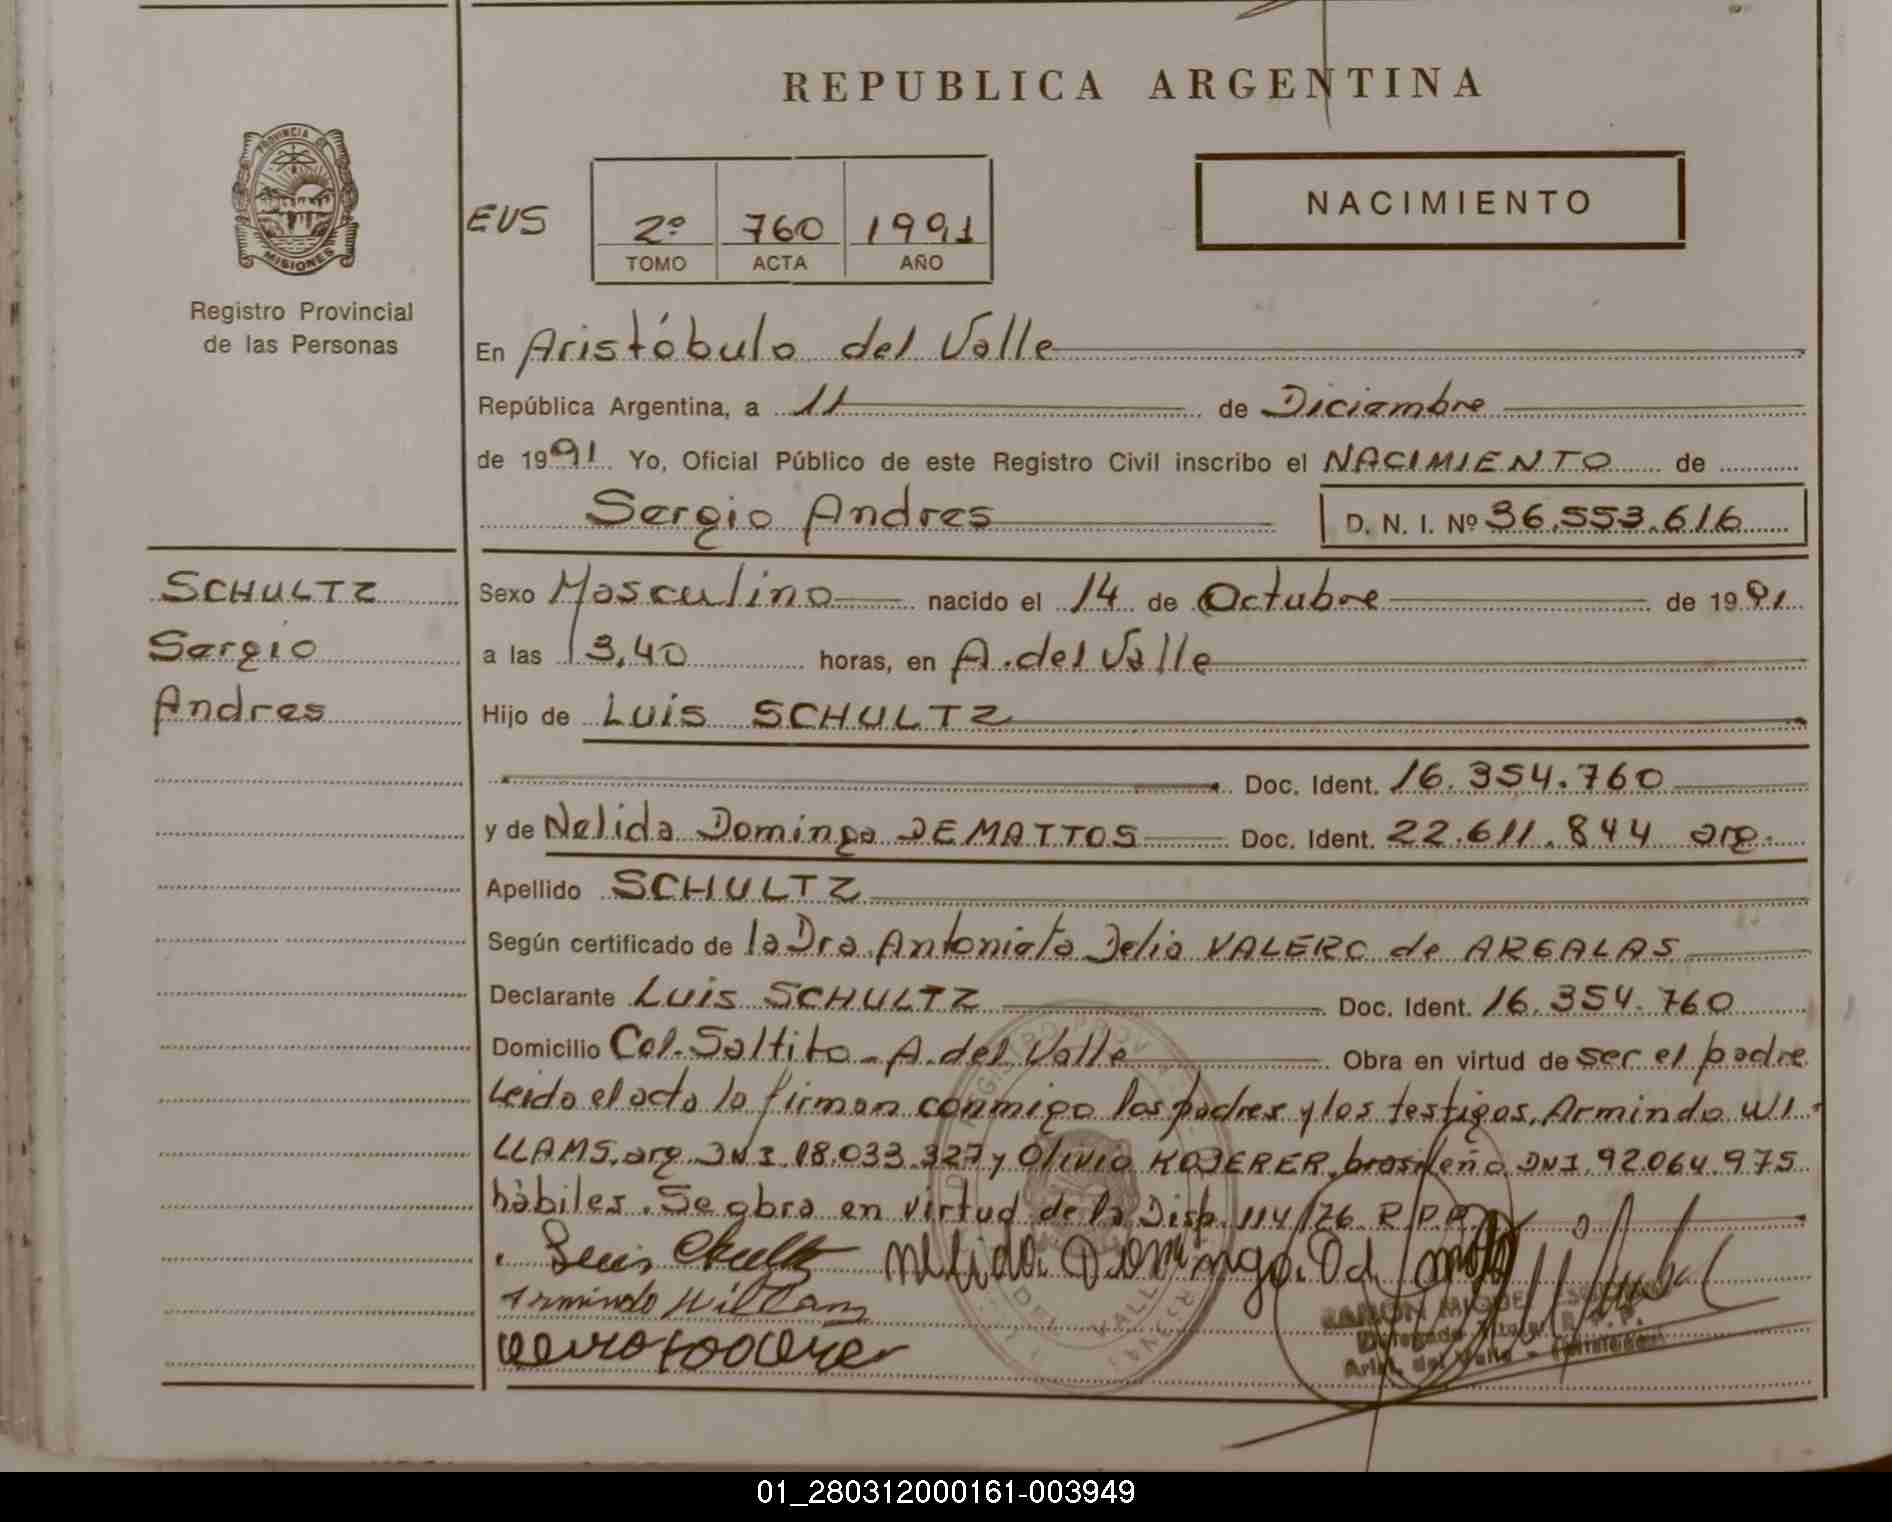 REPUBLICA ARGENTINA
PROVINCIA DE
MISIONES
Registro Provincial
de las Personas
EVS
2º 760 1991
TOMO ACTA AÑO
NACIMIENTO
En Aristóbulo del Valle
República Argentina, a 11 de Diciembre
de 1991 Yo, Oficial Público de este Registro Civil inscribo el NACIMIENTO de
Sergio Andres D. N. I. Nº 36.553.616
SCHULTZ
Sergio
Andres
Sexo Masculino nacido el 14 de Octubre de 1991
a las 13,40 horas, en A. del Valle
Hijo de Luis SCHULTZ
Doc. Ident. 16.354.760
y de Nelida Dominga DEMATTOS Doc. Ident. 22.611.844 arg.
Apellido SCHULTZ
Según certificado de la Dra. Antonieta Delia VALERO de ARGALAS
Declarante Luis SCHULTZ Doc. Ident. 16.354.760
Domicilio Col. Saltito - A. del Valle Obra en virtud de ser el padre
Leido el acta la firman conmigo los padres y los testigos, Armindo WI-
LLAMS, arg. DNI 18.033.327 y Olivio KOJERER, brasileño DNI 92064.975
hábiles. Se obra en virtud de la Disp. 114/76 R.P.P.
Luis Chultz Nelida Dominga De
Armindo Willams
RAMON MIGUEL
Delegado Titular R. P. P.
Arist. del Valle - (Misiones)
01_280312000161-003949